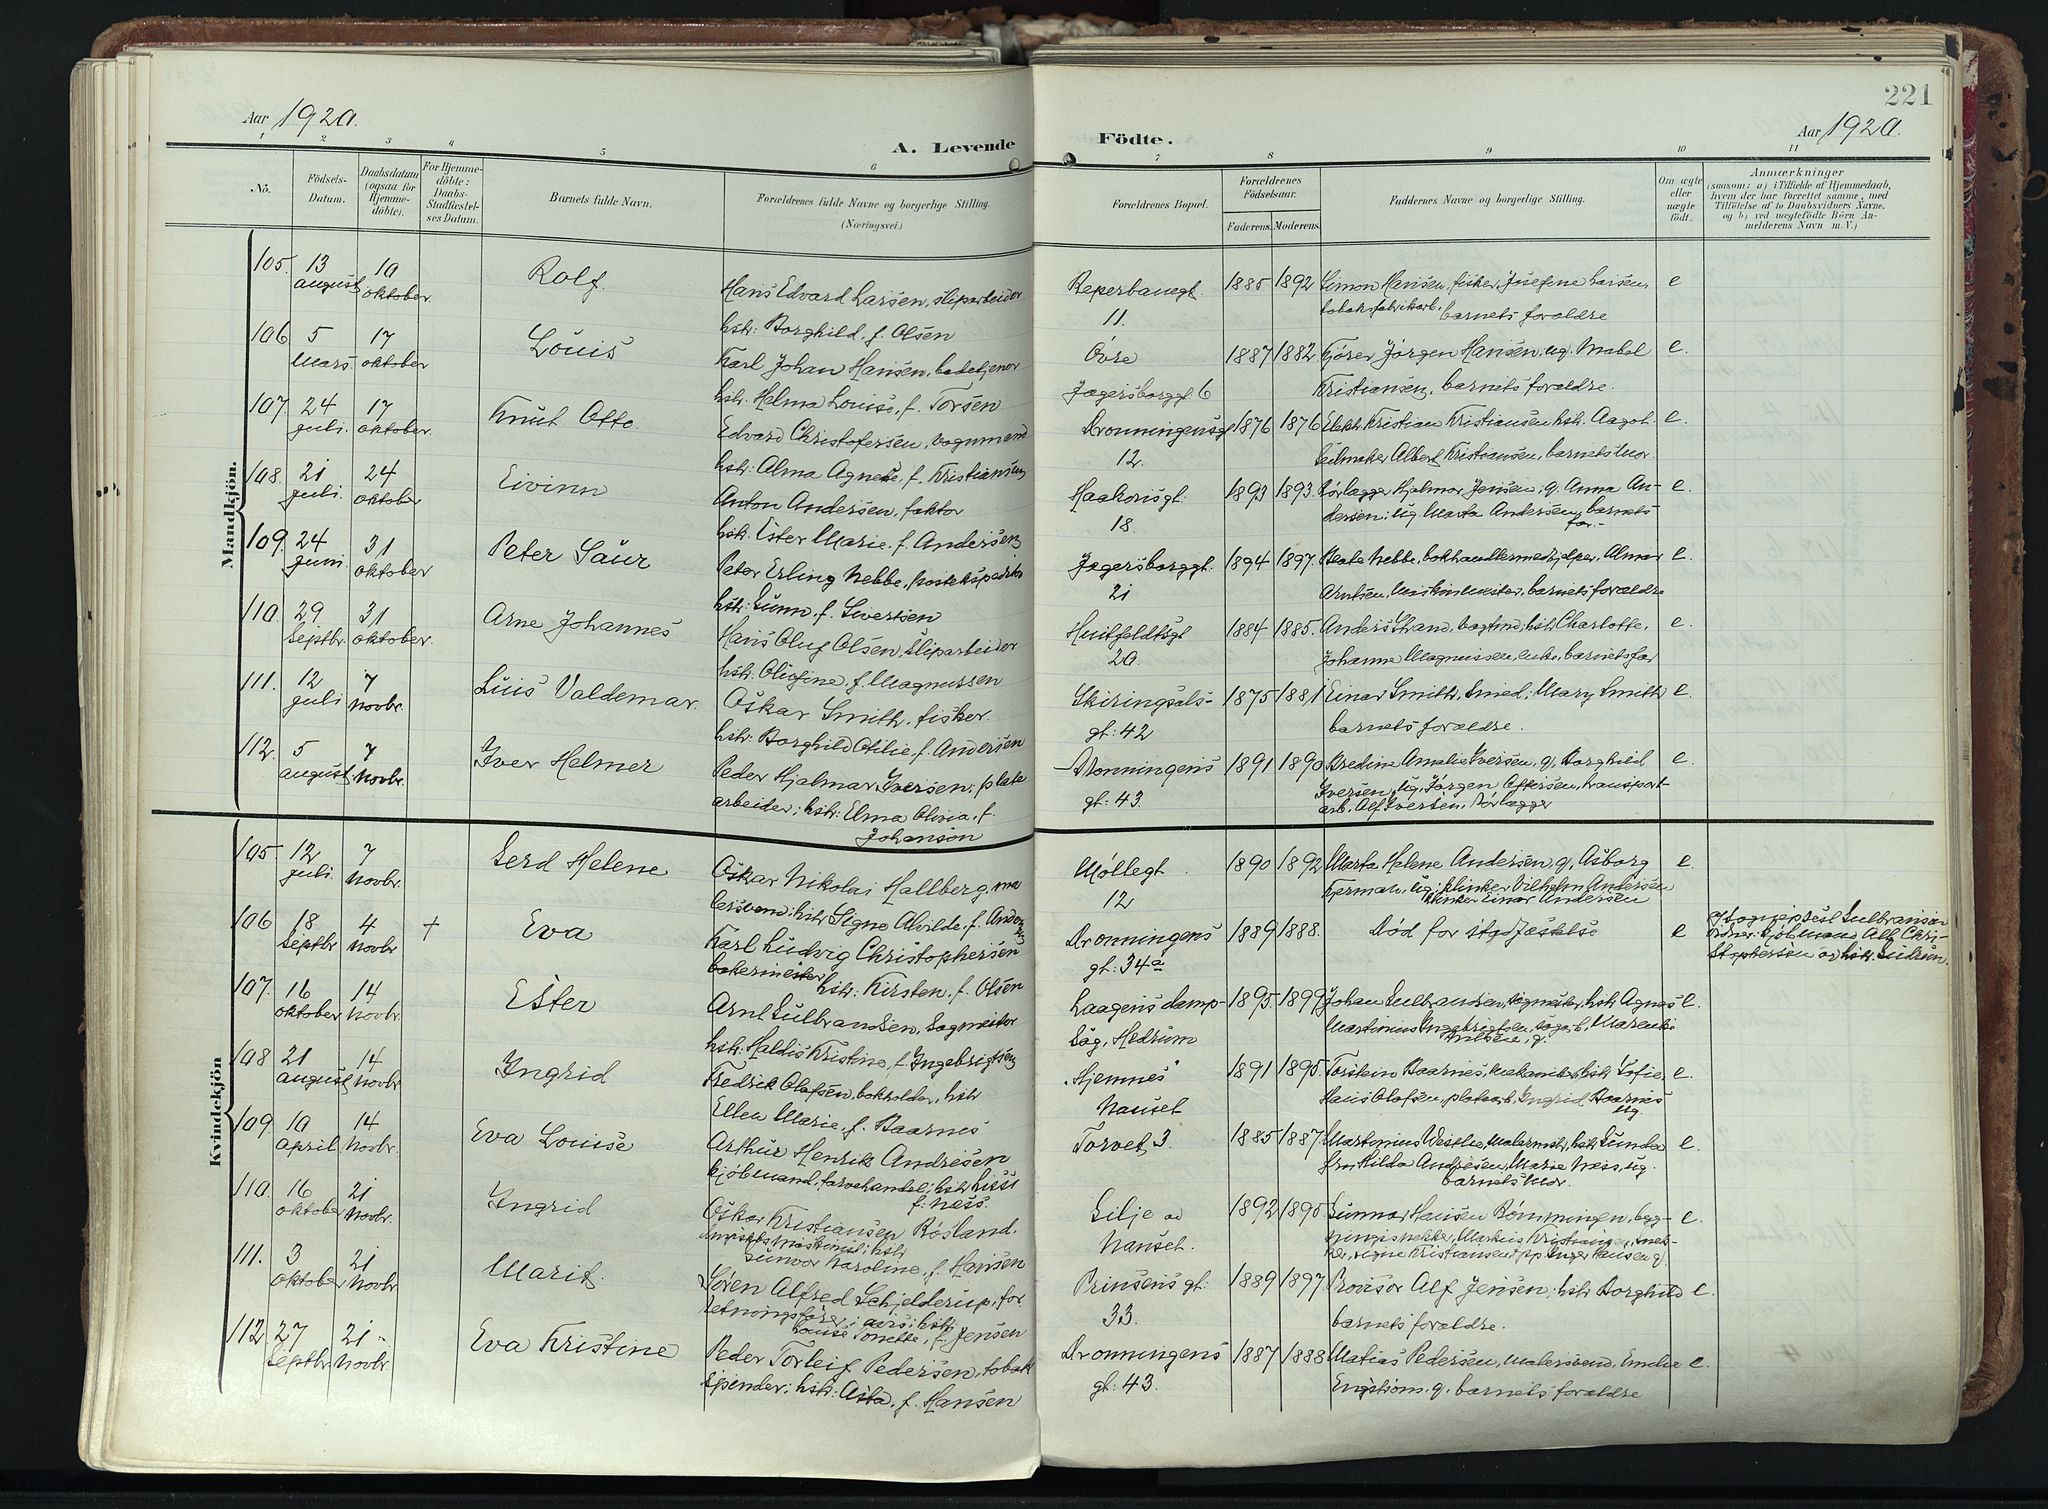 Aar 1920.
A. Levende
Födte.
221
Aar 1920.
1 2 3 4 5 6 7 8 9 10 11
No.
Födsels-
Datum.
Daabsdatum
(ogsaa for
Hjemme-
döbte).
For Hjemme-
döbte:
Daabs-
Stadfæstel-
ses Datum.
Barnets fulde Navn.
Forældrenes fulde Navne og borgerlige Stilling.
(Næringsvei.)
Forældrenes Bopæl.
Forældrenes
Födselsaar.
Faderens. Moderens.
Faddernes Navne og borgerlige Stilling.
Om ægte
eller
uægte
født.
Anmærkninger
(saasom: a) i Tilfælde af Hjemmedaab,
hvem der har forrettet samme, med
Tilføielse af to Daabsvidners Navne,
og b) ved uægtefödte Börn An-
melderens Navn m. V.)
Mandkjön.
105. 13 august 10 oktober. Rolf.
Hans Edvard Larsen, sliparbeider
hstr: Borghild f. Olsen
Reperbanegt. 11. 1885 1892
Simon Hansen, fisker, Josefine Larsen,
tobaksfabrikarb., barnets foraldre
e
106 5 Mars. 17 oktober Louis
Karl Johan Hansen, badetjener
hstr: Helma Louise, f. Torsen
Øvre
Jegersborggt. 6 1887 1882
Kjører Jørgen Hansen, ug. Mabel
Kristiansen, barnets foraldre.
e.
107. 24 juli. 17 oktober. Knut Otto.
Edvard Christofersen, vognmand
hstr: Alma Agnete, f. Kristiansen
Dronningensgt
12. 1876 1876
Elektr. Kristian Kristiansen hstr. Aagot.
Seilmaker Albert Kristiansen, barnets Mor.
e.
108. 21 juli. 24 oktober Eivinn
Anton Andersen, faktor
hstr: Ester Marie, f. Andersen
Haakonsgt.
18. 1893 1893.
Rørlegger Hjalmar Jensen, g. Anna An-
dersen; ug Marta Andersen, barnets
far.
e.
109. 24 juni 31 oktober Peter Saur
Peter Erling Nebbe,
hstr: Sunn, f. Sivertsen
Jegersborggt.
21 1894 1897.
Beate Nebbe, bokhandlermedhjelper, Almar
Arntsen, Maskinmester, barnets foraldre
e
110. 29 Septbr. 31 oktober. Arne Johannes
Hans Oluf Olsen, Sliparbeider
hstr. Olufine, f. Magnussen
Huitfeldtsgt
20. 1884 1885.
Anders Strand, vogtmd, hstr Charlotte,
Johanne Magnussen, enke, barnets far
e.
111. 12 juli 7 Novbr. Luis Valdemar.
Oskar Smith, fisker.
hstr: Borghild Otilie, f. Andersen
Skiringsals-
gt: 42 1875 1881
Einar Smith, Smed; Mary Smith
barnets foraldre.
e.
112. 5 august 7 Novbr. Iver Helmer
Peder Hjalmar Iversen, plate
arbeider; hstr: Elma Olivia, f.
Johanson
Dronningens
gt: 43. 1891 1890
Bredine Amalie Iversen, g, Borghild
Iversen, ug, Jørgen Oftersen, transport
arb. Alf Iversen, Rørlegger
e.
Kvindekjön
105 12 juli. 7 Novbr. Gerd Helene
Oskar Nikolai Hallberg, ma
lersvend; hstr Signe Alvilde, f. Andersen
Møllegt.
12 1890 1892
Marta Helene Andersen, g, Asborg
Hermans, ug; Klinker Vilhelm Andersen
Klinker Einar Andersen
e
106 18 Septbr 4 Novbr. + Eva
Karl Ludvig Christophersen
bakermester hstr: Kirsten, f. Olsen
Dronningens
gt: 34a 1889 1888.
Død før stadfæstelse
e
Kjøbmand Alf Chri-
stophersen og hstr. Gudrun.
107. 16 oktober 14 Novbr. Ester
Arnt Gulbrandsen, Sagmester
hstr: Haldis Kristine, f. Ingebrigtsen
Laagens damp-
sag, Hedrum 1895 1899
Johan Gulbrandsen, sagmester, hstr Agnes
Martinius Ingebrigtsen, sagarb, Marenti
Nilsen, g.
e.
108 21 august 14 Novbr. Ingrid
Fredrik Olafsen, bokholder, hstr
Ellen Marie, f. Baarnes
"Hjemnes"
Nanset 1891 1895.
Torstein Baarnes, Mekaniker, hstr Sofie,
Hans Olafsen, platearb, Ingrid Baarnes
ug.
e.
109 10 april 14 Novbr. Eva Louise
Arthur Henrik Andresen
kjøbmand, farvehandel; hstr Lissi
f. Ness.
Torvet 3. 1885 1887.
Martinius Westlie Malermstr, hstr Gunda
fru Hilda Andresen, Marie Ness, ug.
barnets Mor.
e
110. 16 oktober 21 Novbr. Ingrid
Oskar Kristiansen Røsland.
hstr
Gunvor Karoline, f. Hansen
Lilje ad
Nanset. 1892 1895
Gunnar Hansen Bømmingen, byg-
ningssnekker, Markus Kristiansen, snek-
ker, Signe Kristiansen, pp Inger Hansen g.
e.
111. 3 oktober 21 Novbr. Marit.
Søren Alfred Schjelderup, for
retningsfører i aars; hstr
Louise Tonette, f. Jensen
Prinsens gt:
33. 1889 1897.
Provisor Alf Jensen, hstr Borghild
barnets foraldre.
e.
112 27 Septbr 21 Novbr. Eva Kristine
Peder Torleif Pedersen, tobak
spinder; hstr: Asta, f. Hansen
Dronningens
gt: 43. 1887 1888
Matias Pedersen, malersvend, Emelie
Engstrøm, g, barnets foraldre
e.